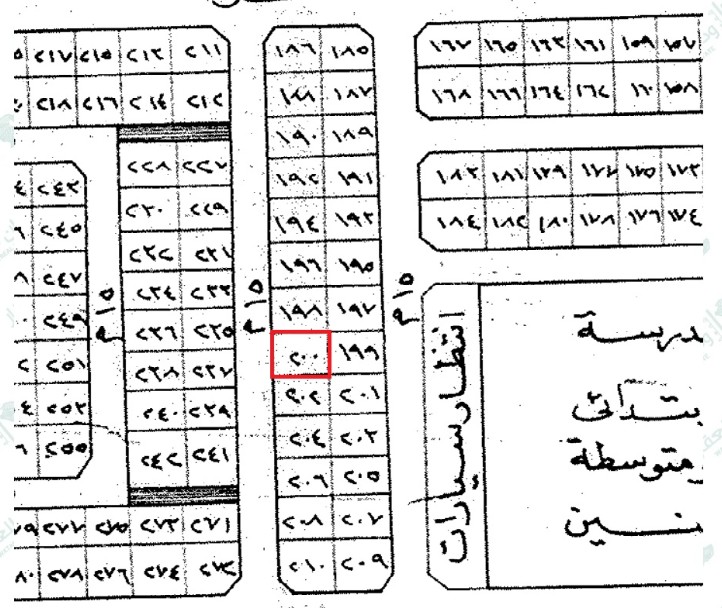 ١٥٧ ١٥٩ ١٦١ ١٦٣ ١٦٥ ١٦٧
١٥٨ ١٦٠ ١٦٢ ١٦٤ ١٦٦ ١٦٨
١٧٣ ١٧٥ ١٧٧ ١٧٩ ١٨١ ١٨٣
١٧٤ ١٧٦ ١٧٨ ١٨٠ ١٨٢ ١٨٤
متوسطة
انتظار سيارات
١٥ م
١٨٥ ١٨٦
١٨٧ ١٨٨
١٨٩ ١٩٠
١٩١ ١٩٢
١٩٣ ١٩٤
١٩٥ ١٩٦
١٩٧ ١٩٨
١٩٩ ٢٠٠
٢٠١ ٢٠٢
٢٠٣ ٢٠٤
٢٠٥ ٢٠٦
٢٠٧ ٢٠٨
٢٠٩ ٢١٠
١٥ م
٢١١ ٢١٣ ٢١٥ ٢١٧
٢١٢ ٢١٤ ٢١٦ ٢١٨
٢٢٧ ٢٢٨
٢٢٩ ٢٣٠
٢٣١ ٢٣٢
٢٣٣ ٢٣٤
٢٣٥ ٢٣٦
٢٣٧ ٢٣٨
٢٣٩ ٢٤٠
٢٤١ ٢٤٢
١٥ م
٢٤٣
٢٤٥
٢٤٧
٢٤٩
٢٥١
٢٥٣
٢٥٥
٢٧١ ٢٧٣ ٢٧٥ ٢٧٧
٢٧٢ ٢٧٤ ٢٧٦ ٢٧٨